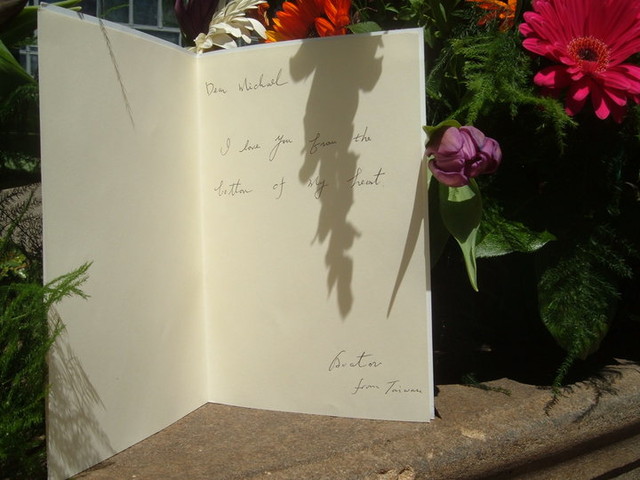 Dear Michael
I love you from the
bottom of my heart.
from Taiwan